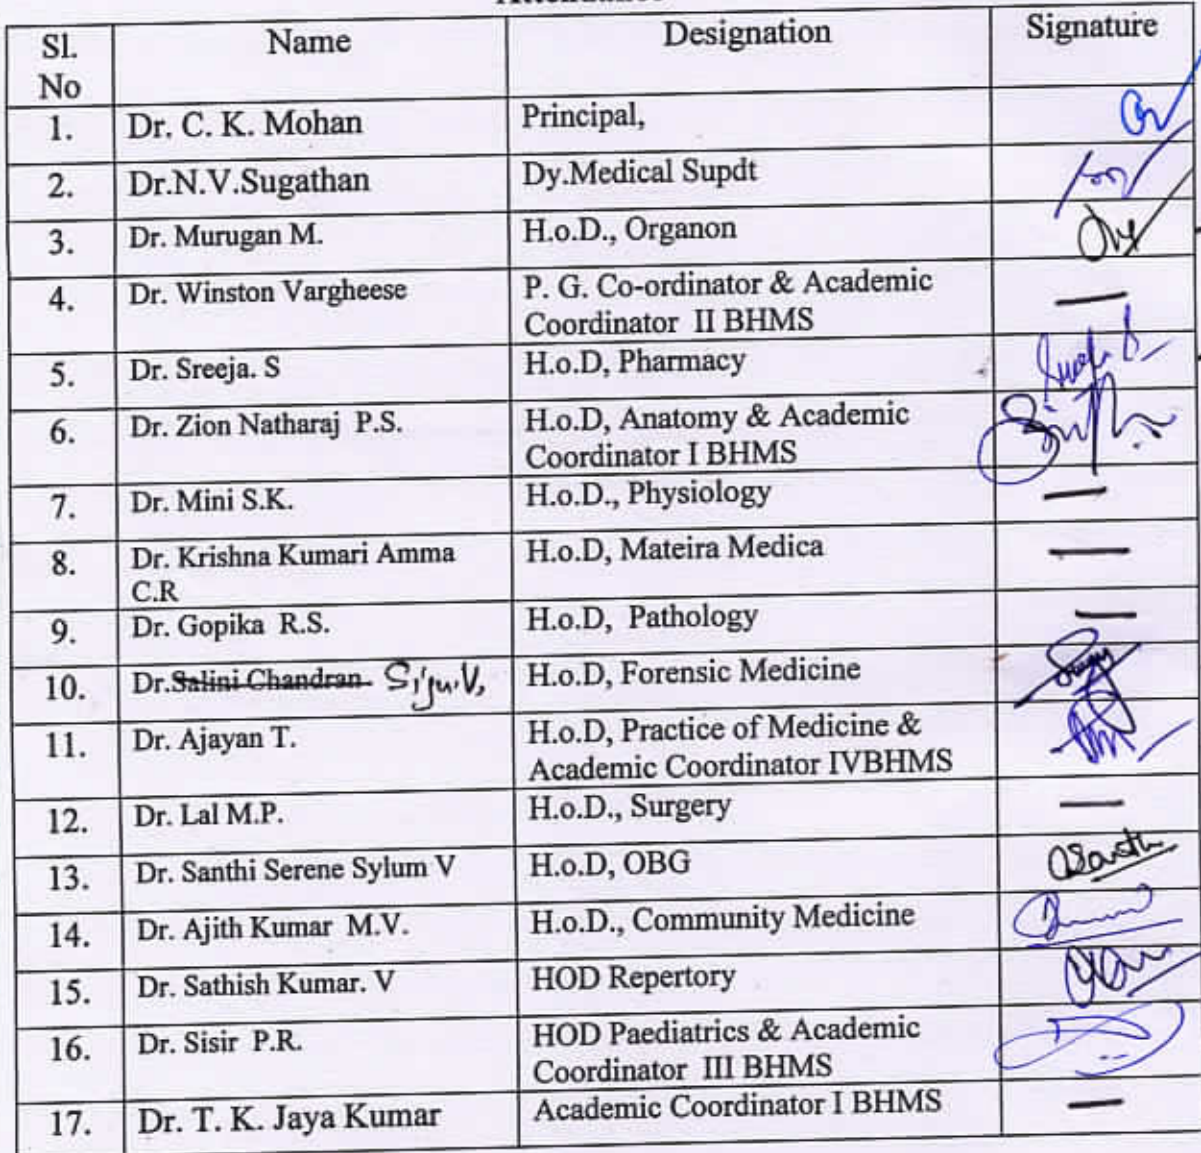 Sl. No Name Designation Signature
1. Dr. C. K. Mohan Principal,
2. Dr.N.V.Sugathan Dy.Medical Supdt
3. Dr. Murugan M. H.o.D., Organon
4. Dr. Winston Vargheese P. G. Co-ordinator & Academic
Coordinator II BHMS —
5. Dr. Sreeja. S H.o.D, Pharmacy
6. Dr. Zion Natharaj P.S. H.o.D, Anatomy & Academic
Coordinator I BHMS
7. Dr. Mini S.K. H.o.D., Physiology —
8. Dr. Krishna Kumari Amma
C.R H.o.D, Mateira Medica —
9. Dr. Gopika R.S. H.o.D, Pathology —
10. Dr.Salini Chandran Siju.V, H.o.D, Forensic Medicine
11. Dr. Ajayan T. H.o.D, Practice of Medicine &
Academic Coordinator IVBHMS
12. Dr. Lal M.P. H.o.D., Surgery —
13. Dr. Santhi Serene Sylum V H.o.D, OBG
14. Dr. Ajith Kumar M.V. H.o.D., Community Medicine
15. Dr. Sathish Kumar. V HOD Repertory
16. Dr. Sisir P.R. HOD Paediatrics & Academic
Coordinator III BHMS
17. Dr. T. K. Jaya Kumar Academic Coordinator I BHMS —